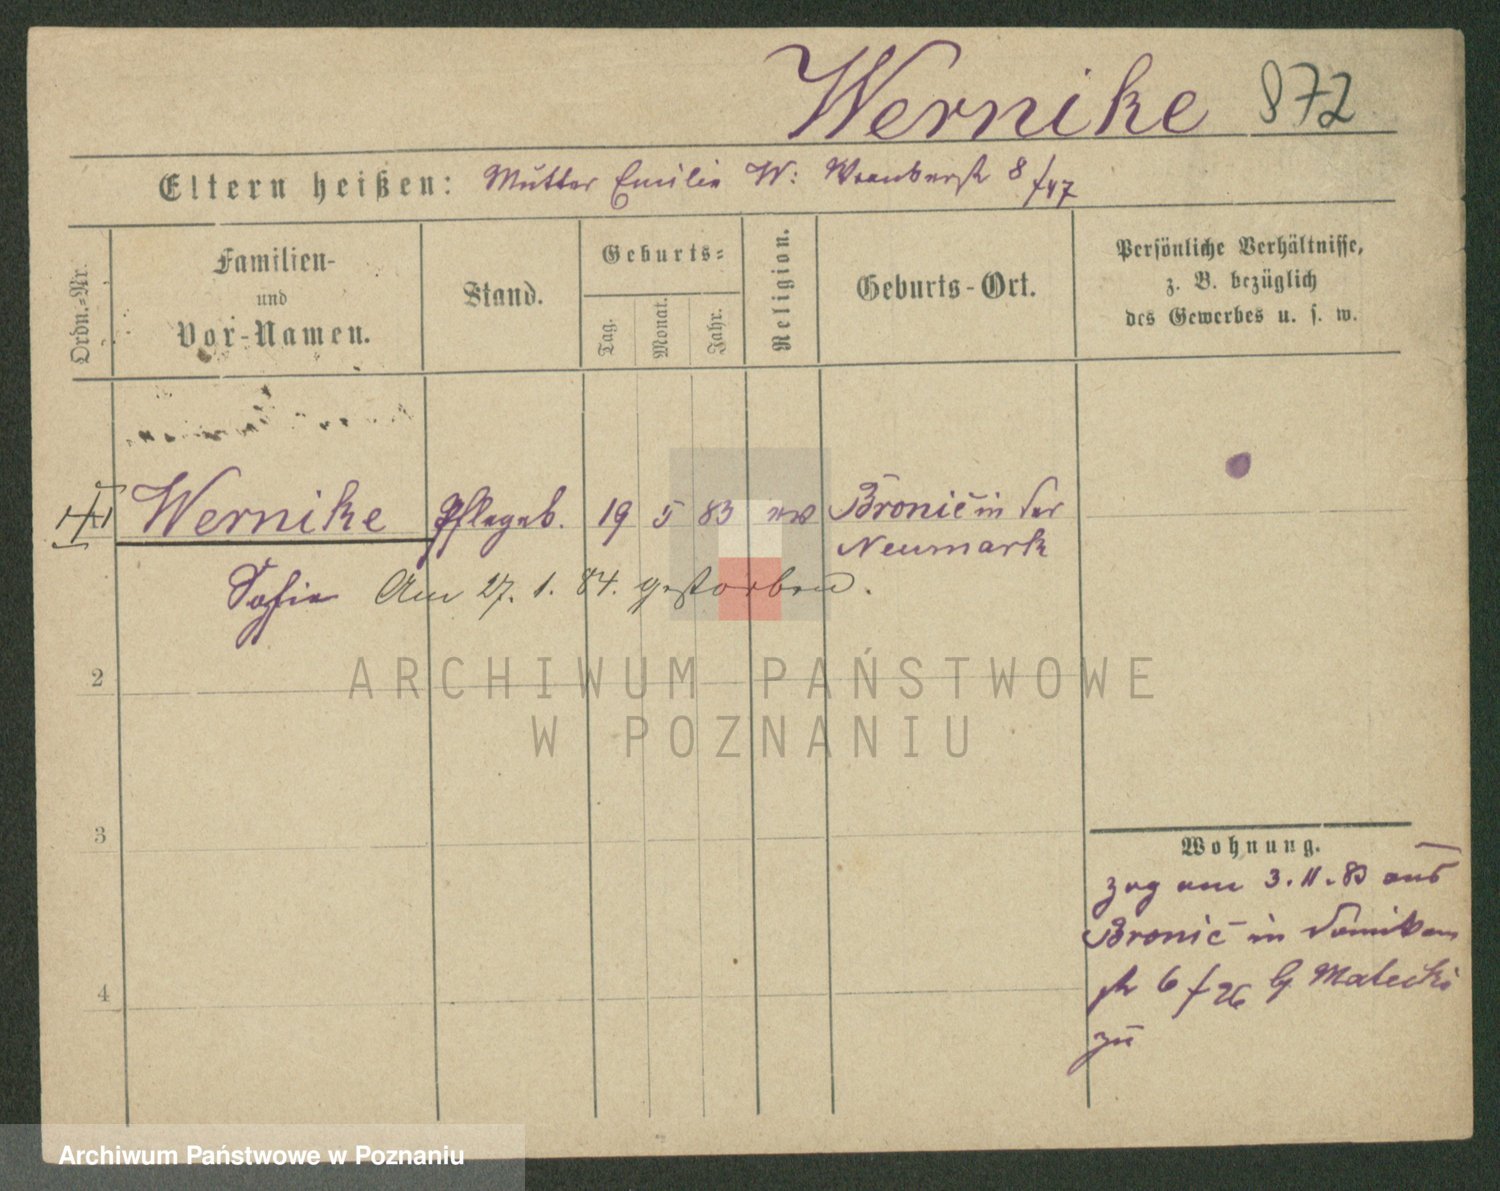 Wernike 872
Eltern heißen: Mutter Emilie W: 8/47
Ordn.-Nr.
Familien-
und
Vor-Namen.
Stand.
Geburts-
Tag.
Monat.
Jahr.
Religion.
Geburts-Ort.
Persönliche Verhältnisse,
z. B. bezüglich
des Gewerbes u. s. w.
Wernike Pflegeb. 19 5 83 ev Bronic in der
Neumark
Sofie Am 27. 1. 84. gestorben.
2
3
4
Wohnung.
zog am 3.11.83 aus
Bronic in
str 6/26 Malecki
zu
ARCHIWUM PAŃSTWOWE
W POZNANIU
Archiwum Państwowe w Poznaniu